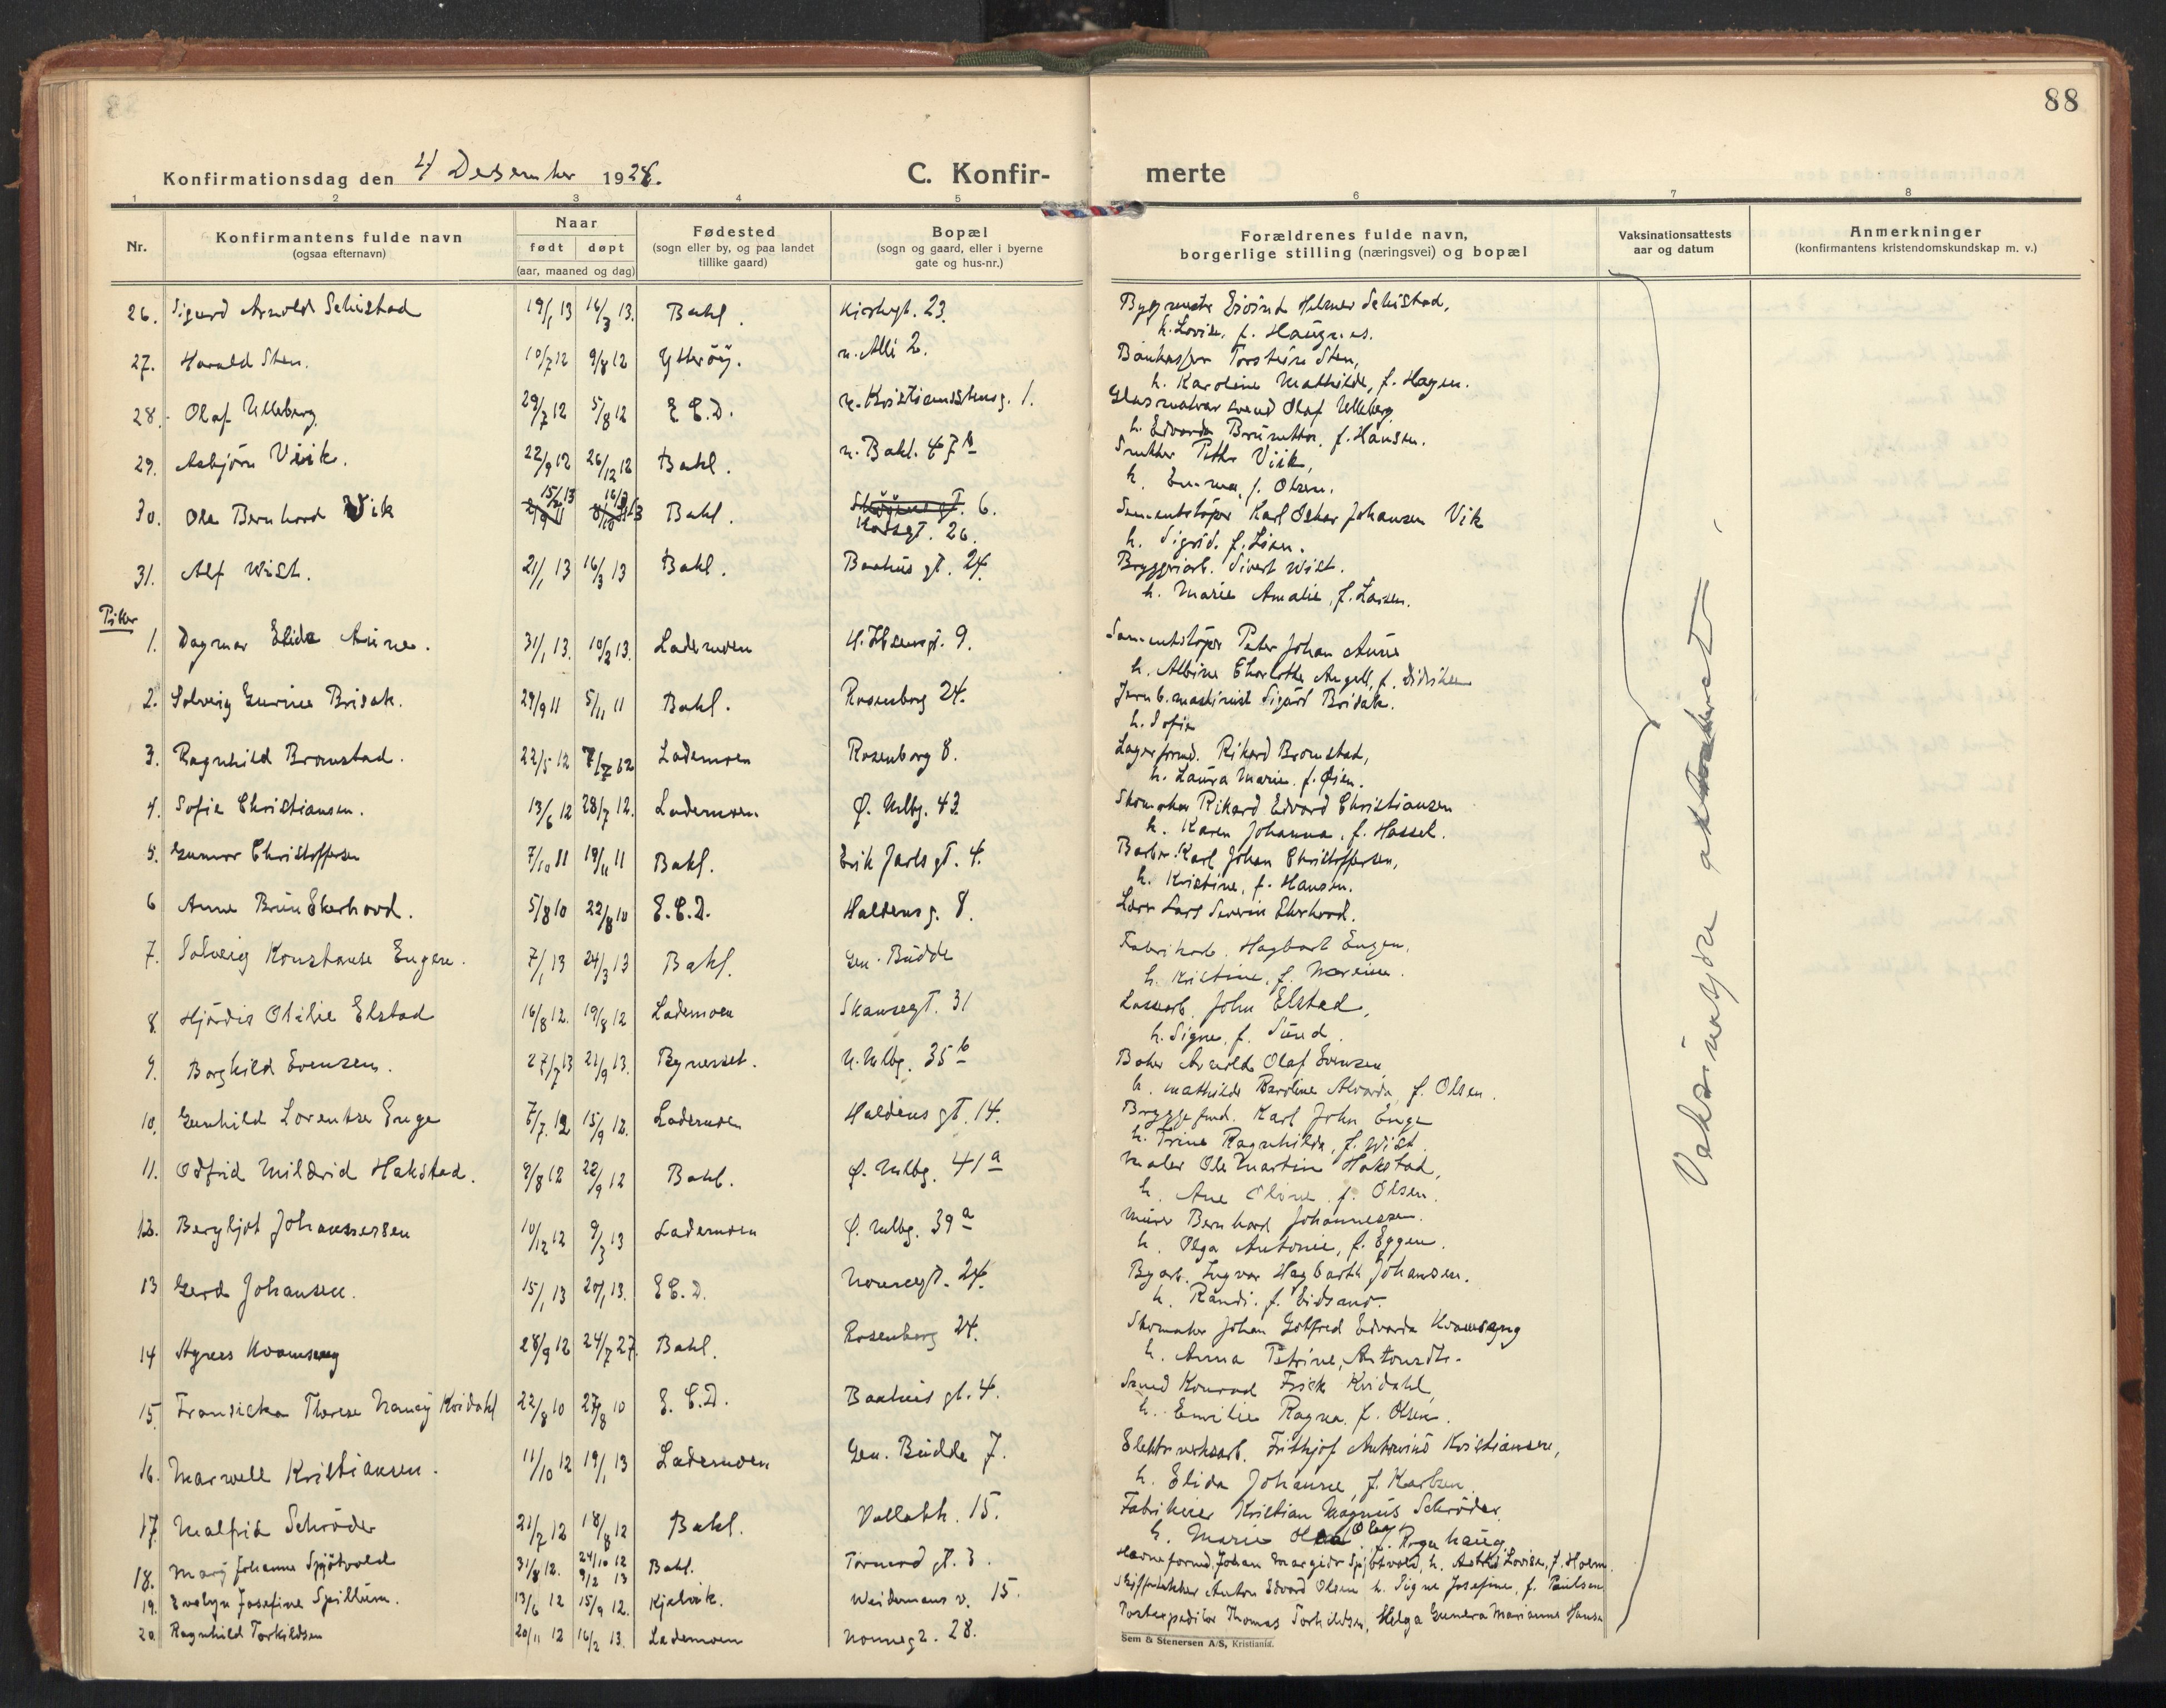 88
Konfirmationsdag den 4/ Desember 1928.
C. Konfir-
merte
1 2 3 4 5 6 7 8
Nr.
Konfirmantens fulde navn
(ogsaa efternavn)
Naar
født døpt
(aar, maaned og dag)
Fødested
(sogn eller by, og paa landet
tillike gaard)
Bopæl
(sogn og gaard, eller i byerne
gate og hus-nr.)
Forældrenes fulde navn,
borgerlige stilling (næringsvei) og bopæl
Vaksinationsattests
aar og datum
Anmerkninger
(konfirmantens kristendomskundskap m. v.)
26. Sigurd Arnold Schistad 19/1 13 16/3 13. Bakl. 23. Eivind Helmer Schistad,
h. Lovise, f. Haugnes.
27. Harald Sten. 10/7 12 9/8 12 Ytterøy. n. Alle 2. Torstein Sten,
h. Karoline Mathilde, f. Hagen.
28. Olaf Ulleberg 29/7 12 5/8 12 E.C.D. n. Kristianstensg. 1. Olaf Ulleberg
h. Edvarda f. Hansen.
29. Asbjørn Viik. 22/9 12 26/12 12 Bakl. n. Bakl. 47 b Snekker Petter Viik,
h. Emma, f. Olsen.
30. Ole Bernhard Vik 15/2 13 Bakl. 6.
26. Sementstøper Karl Oskar Johansen Vik
h. Sigrid. f. Lien.
31. Alf Wist. 21/1 13 16/3 13 Bakl. Baahus gt. 24. Bryggeriarb. Sivert Wist.
h. Marie Amalie, f. Larsen.
Piker
1. Dagmar Elida Aune. 31/1 13. 10/2 13. Lademoen H. Ibsensgt. 9. Sementstøper Peter Johan Aune
h. Albine Charlotte Angell, f. Didriksen
2. Solveig Gurine Brisak. 29/9 11 5/11 11 Bakl. Rosenborg 24. Jernb. maskinist Sigurd Brisak.
h. Sofie
3. Ragnhild Bromstad. 22/5 12 7/7 12 Lademoen Rosenborg 8. Lagerformd. Rikard Bromstad,
h. Laura Marie. f. Øien.
4. Sofie Christiansen. 13/6 12 28/7 12. Lademoen Ø. Mlbg. 43 Skomaker Rikard Edvard Christiansen
h. Karen Johanna, f. Hassel.
5. Gunvor Christoffersen 7/10 11 19/11 11 Bakl. Erik Jarls gt. 4. Barber Karl Johan Christoffersen,
h. Kristine, f. Hansen.
6 Anne Brun Ekerhovd. 5/8 10 22/8 10 E.C.D. Haldensg. 8. Lærer Lars Severin Ekerhovd.
7. Solveig Konstanse Engen. 7/1 13 24/3 13 Bakl. Gen. Budde Fabrikarb. Hagbart Engen,
h. Kristine, f.
8 Hjørdis Otilie Elstad 16/8 12. 19/8 12 Lademoen Skansegt. 31 Lossearb. John Elstad,
h. Signe, f. Sund.
9. Borghild Evensen. 27/7 13 21/9 13. Byneset. n. Mlbg. 35 b Baker Arnold Olaf Evensen,
h. Mathilde Karoline Alvarda, f. Olsen.
10. Gunhild Lorentze Enge 7/7. 12 15/9 12. Lademoen Haldens gt. 14. Bryggeformd. Karl John Enge
h. Trine Ragnhilda, f. Wist.
11. Odfrid Mildrid Hakstad. 9/8 12 22/9 12 Bakl. Ø. Mlbg. 41 a Maler Ole Martin Hakstad,
h. Ane Oline. f. Olsen.
12. Bergljot Johannessen 10/12 12 9/3 13 Lademoen Ø. Mlbg. 39 a Murer Bernhard Johannessen.
h. Olga Antonie, f. Eggen.
13 Gerd Johansen. 15/1 13 20/1 13. E.C.D. Nonnegt. 24. Byarb. Ingvar Hagbarth Johansen.
h. Randi. f. Eidsand.
14 Agnes Kvamseng 28/9 12 24/7 27. Bakl. Rosenborg 24. Skomaker Johan Gotfred Edvarda Kvamseng
h. Anna Petrine, Antonsdtr.
15 Fransiska Therese Nancy Kvidahl 22/8 10 27/8 10 E.C.D. Baahus gt. 4. Smed Konrad Frick Kvidahl,
h. Emilie Ragna. f. Olsen.
16. Marvell Kristiansen. 11/10 12 19/1 13 Lademoen Gen. Budde 7. Elektr.verksarb. Frithjof Antonius Kristiansen,
h. Elida Johanne, f. Karlsen.
17. Malfrid Schrøder 21/7 12 18/8 12 Bakl. Vollabk. 15. Fabrikeier Kristian Magnus Schrøder,
h. Marie Olea, f.
18. Mary Johanne Spjøtvold 31/8 12. 24/10 12 9/2 13 Bakl. Tormod gt. 3. Havneformd. Johan Margido Spjøtvold, h. Astrid Lovise, f. Holm.
19. Evelyn Josefine Spillum. 13/6 12 15/9 12. Kjelvik. Weidemans v. 15. Anton Edvard Olsen h. Signe Josefine, f. Paulsen
20. Ragnhild Torkildsen 20/11 12 16/2 13. Lademoen Nonnegt. 28. Postexpeditør Thomas Torkildsen, Helga Gunera Marianne Hansen
Vaksinasjon attestert
Sem & Stenersen A/S, Kristiania.